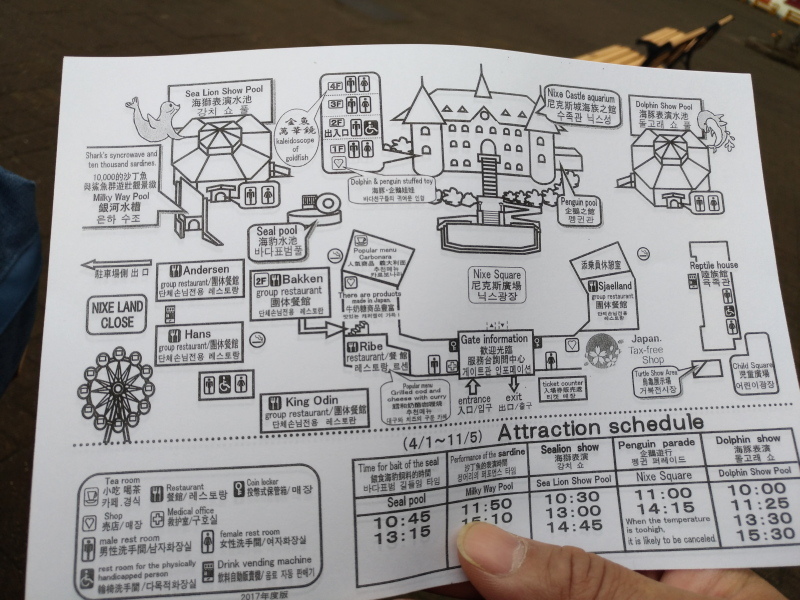 Sea Lion Show Pool
海獅表演水池
강치 쇼 풀
金魚
萬華鏡
kaleidoscope
of
goldfish
4F
3F
2F
出入口
1F
Nixe Castle aquarium
尼克斯城海族之館
수족관 닉스성
Dolphin Show Pool
海豚表演水池
돌고래 쇼 풀
Shark's syncrowave and
ten thousand sardines.
10,000的沙丁魚
與鯊魚群遊壯觀景緻
Milky Way Pool
銀河水槽
은하 수조
Dolphin & penguin stuffed toy
海豚·企鵝娃娃
Penguin pool
企鵝之館
펭귄관
Seal pool
海豹水池
바다표범풀
駐車場側 出口
NIXE LAND
CLOSE
Andersen
group restaurant/團体餐館
단체손님전용 레스토랑
2F
Bakken
group restaurant
團体餐館
단체손님전용 레스토랑
Popular menu
Carbonara
人氣商品 義大利面
추천메뉴
카르보나라
There are products
made in Japan.
牛奶糖商品豐富
Nixe Square
尼克斯廣場
닉스광장
添乘員休憩室
Sjaelland
group restaurant
團体餐館
단체손님전용
레스토랑
Reptile house
陸族館
육족관
Hans
group restaurant/團体餐館
단체손님전용 레스토랑
Ribe
restaurant/餐 館
레스토랑 토센
Gate information
歡迎光臨
服務台詢問中心
게이트관 인포메이션
Japan.
Tax-free
Shop
Turtle Show Area
烏龜展示場
거북전시장
Child Square
兒童廣場
어린이광장
King Odin
group restaurant/團体餐館
단체손님전용 레스토란
Popular menu
Grilled cod and
cheese with curry
추천메뉴
entrance
入口/입구
exit
出口/출구
ticket counter
入場券販売處
티켓 매장
(4/1~11/5) Attraction schedule
Time for bait of the seal
餵食海豹飼料的時間
바다표범 길들임 타임
Seal pool
10:45
13:15
Performance of the sardine
沙丁魚的表演時間
정어리의 퍼포먼스 타임
Milky Way Pool
11:50
15:10
Sealion show
海獅表演
강치 쇼
Sea Lion Show Pool
10:30
13:00
14:45
Penguin parade
企鵝遊行
펭귄 퍼레이드
Nixe Square
11:00
14:15
When the temperature
is toohigh,
it is likely to be canceled.
Dolphin show
海豚表演
돌고래 쇼
Dolphin Show Pool
10:00
11:25
13:30
15:30
Tea room
小吃 喝茶
카페.경식
Restaurant
餐館/레스토랑
Coin locker
投幣式保管箱/매장
Shop
売店/매장
Medical office
救护室/구호실
male rest room
男性洗手間/남자화장실
female rest room
女性洗手間/여자화장실
rest room for the physically
handicapped person
輪椅洗手間/다목적화장실
Drink vending machine
飲料自動販賣機/음료 자동 판매기
2017年度版